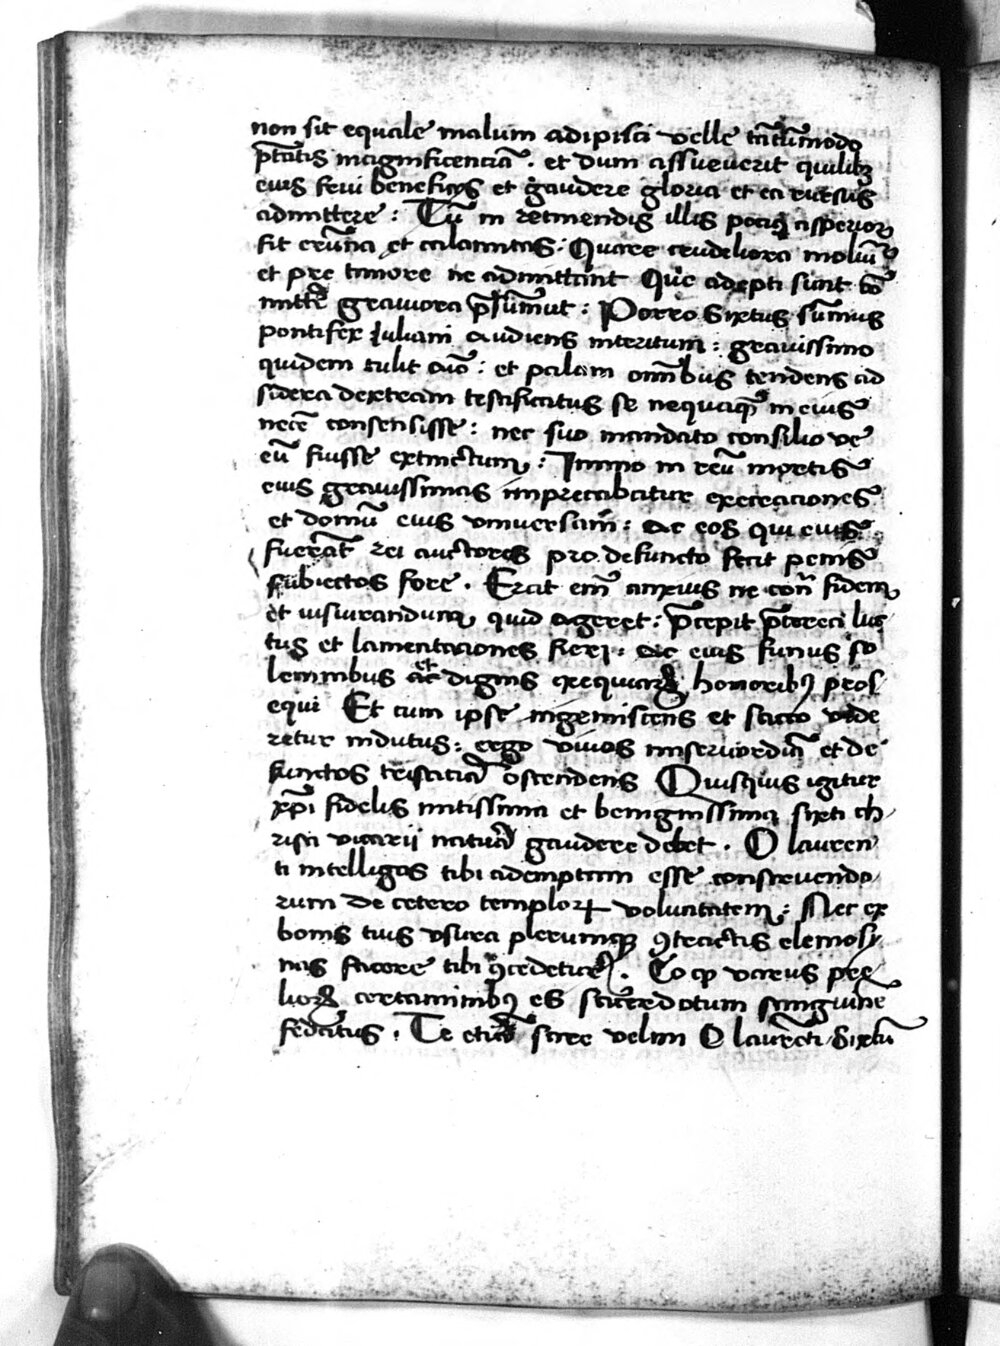 non sit equale malum adipisci velle tm̄tūmodo
p̄tatis magnificenciā . et dum assueverit quilibꝫ
eius frui beneficijs et gaudere gloria et ea rursus
admittere : Tū in retinendis illis pociꝰ asperior
fit erūna et calamitas : Quare crudeliora moliūꝰ
et pre timore ne admittant Que adepti sunt cō
mitte᷑ graviora p̄sūmut : Porro Sixtus sūmus
pontifex Iuliani audiens interitum : gravissimo
quidem tulit aīo : et palam omībus tendens ad
sidera dexteram testificatus se nequaqꝫ in eius
necē consensisse : nec suo mandato consilio ve
eū fuisse extinctum : Immo in reū mortis
eius gravissimas imprecabatur execraciones
et domū eius universam : ac eos qui eius
fuerāt rei auctores pro defuncto fecit penis
subiectos fore . Erat em̄ anxius ne con̄ fidem
et iusiurandum quid ageret : p̄cepit p̄terea luc
tus et lamentaciones fieri : ac eius funus so
lemnibus ac et dignis exequiarꝝ honoribꝰ pros
equi Et cum ipse ingemiscens et sacco vide
retur indutus : ergo vivos misericordiā et de
functos tristiciā ostendens Quisquis igitur
xp̄i fidelis mitissima et benignissima sixti ch
risti vicarii natura gaudere debet . O lauren
ti intelligas tibi ademptam esse construendo
rum de cetero templorꝝ voluntatem : Nec ex
bonis tuis usura plerumqꝫ ꝯtractis elemosi
nas facere tibi ꝯcedetur . Eo ꝙ varijs pre
liorꝝ certaminibꝰ es sacerdotum sanguine
fedatus . Te etiā scire velim O laurēti Sixtū